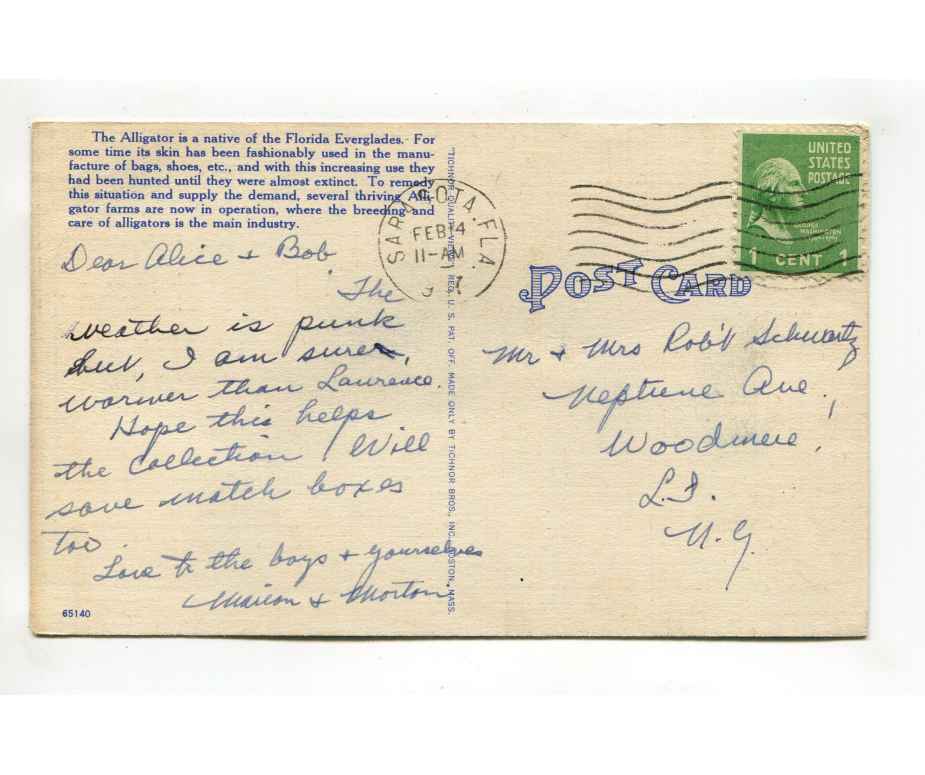 The Alligator is a native of the Florida Everglades. For
some time its skin has been fashionably used in the manu-
facture of bags, shoes, etc., and with this increasing use they
had been hunted until they were almost extinct. To remedy
this situation and supply the demand, several thriving Alli-
gator farms are now in operation, where the breeding and
care of alligators is the main industry.
Dear Alice + Bob
The
weather is punk
but, I am sure,
warmer than Lawrence.
Hope this helps
the collection. Will
save match boxes
too.
Love to the boys + yourselves
Marion + Morton
65140
"TICHNOR QUALITY VIEWS," REG. U. S. PAT. OFF. MADE ONLY BY TICHNOR BROS., INC., BOSTON, MASS.
SARASOTA, FLA.
FEB 14
11-AM
UNITED
STATES
POSTAGE
GEORGE
WASHINGTON
1 CENT 1
POST CARD
Mr + Mrs Rob't Schwartz
Neptune Ave.,
Woodmere,
L.I.
N.Y.